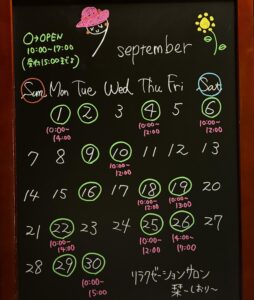 ○→OPEN
10:00~17:00
(受付15:00まで)
september
Sun Mon Tue Wed Thu Fri Sat
1 2 3 4 5 6
10:00~14:00 10:00~12:00 10:00~12:00
7 8 9 10 11 12 13
10:00~12:00
14 15 16 17 18 19 20
10:00~12:00 10:00~13:00
21 22 23 24 25 26 27
10:00~14:00 10:00~12:00 14:00~17:00
28 29 30
10:00~15:00
リラクゼーションサロン
栞~しおり~